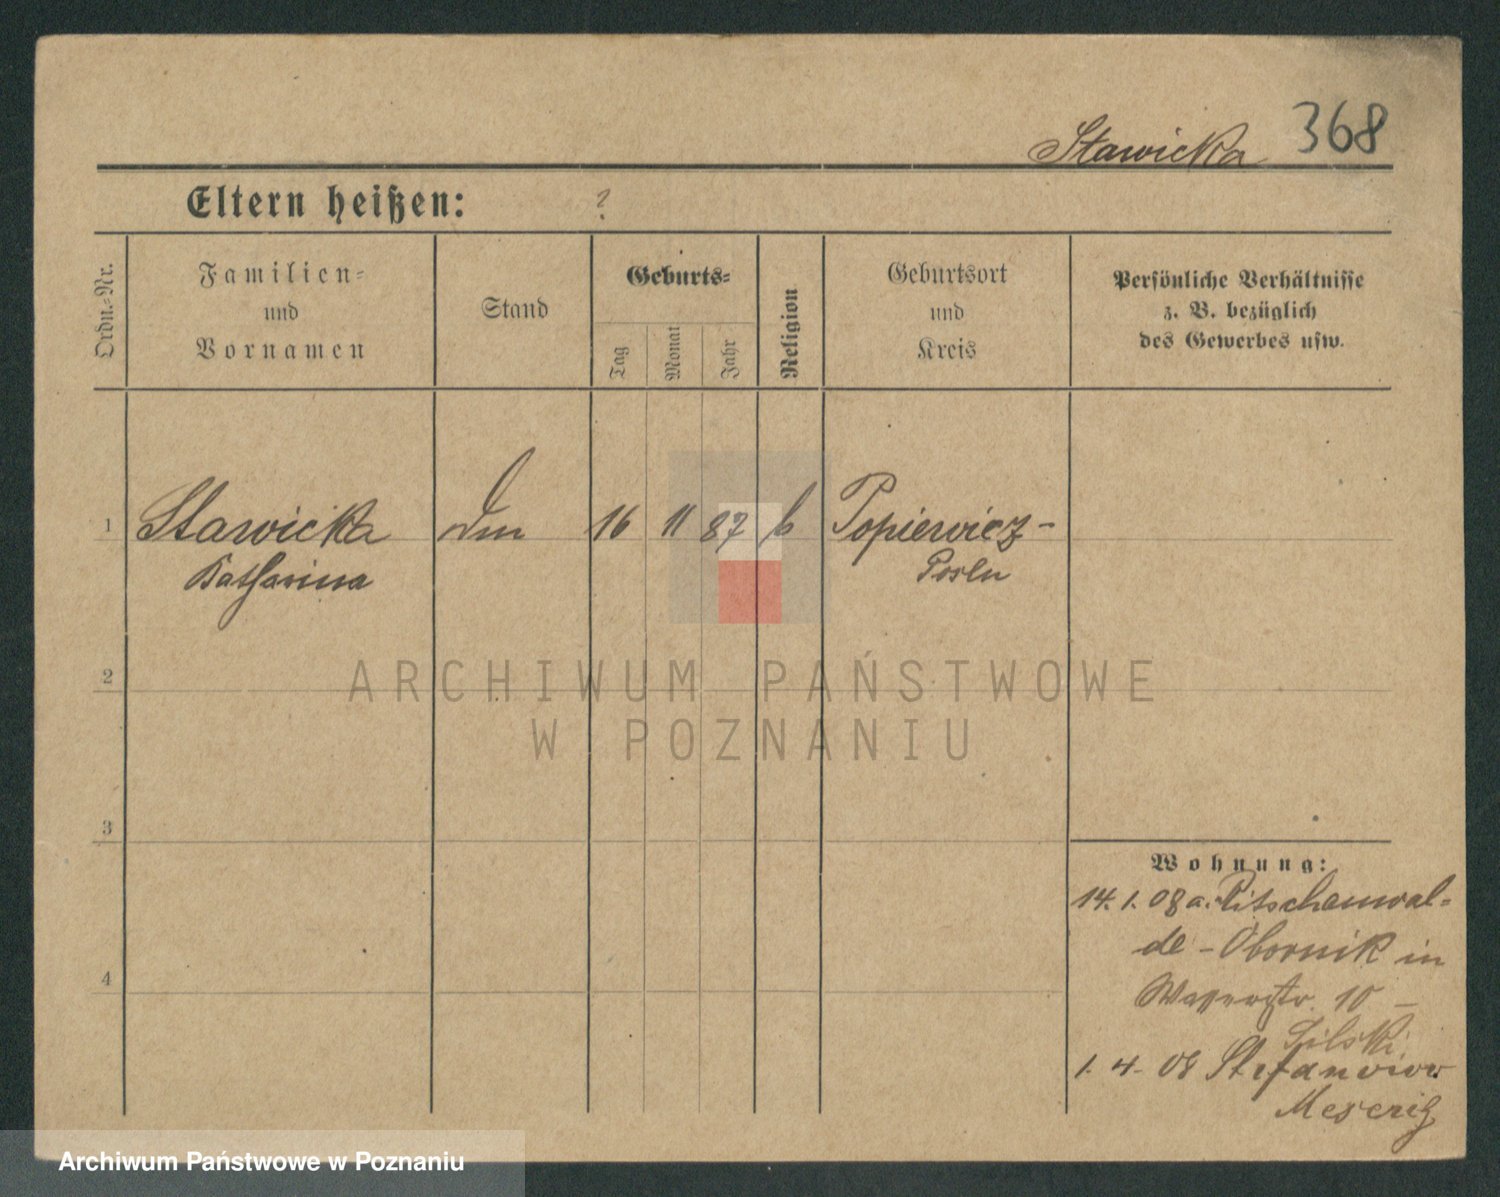 Stawicka 368
Eltern heißen: ?
Ordn.-Nr.
Familien-
und
Vornamen
Stand
Geburts-
Tag
Monat
Jahr
Religion
Geburtsort
und
Kreis
Persönliche Verhältnisse
z. B. bezüglich
des Gewerbes usw.
1 Stawicka 16 11 87 Popiewicz-
Katharina Posen
2
ARCHIWUM PAŃSTWOWE
W POZNANIU
3
Wohnung:
14. 1. 08 a. Ritschenwal-
de - Obornik in
10 -
Silski
1. 4. 08
Meseritz
4
Archiwum Państwowe w Poznaniu